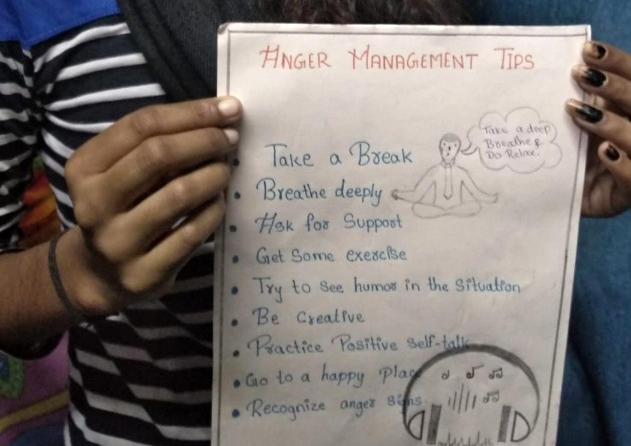 ANGER MANAGEMENT TIPS
Take a deep
Breathe &
Do Relax.
• Take a Break
• Breathe deeply
• Ask for Support
• Get Some exercise
• Try to see humor in the Situation
• Be Creative
• Practice Positive Self-talk
• Go to a happy Place
• Recognize anger Signs.